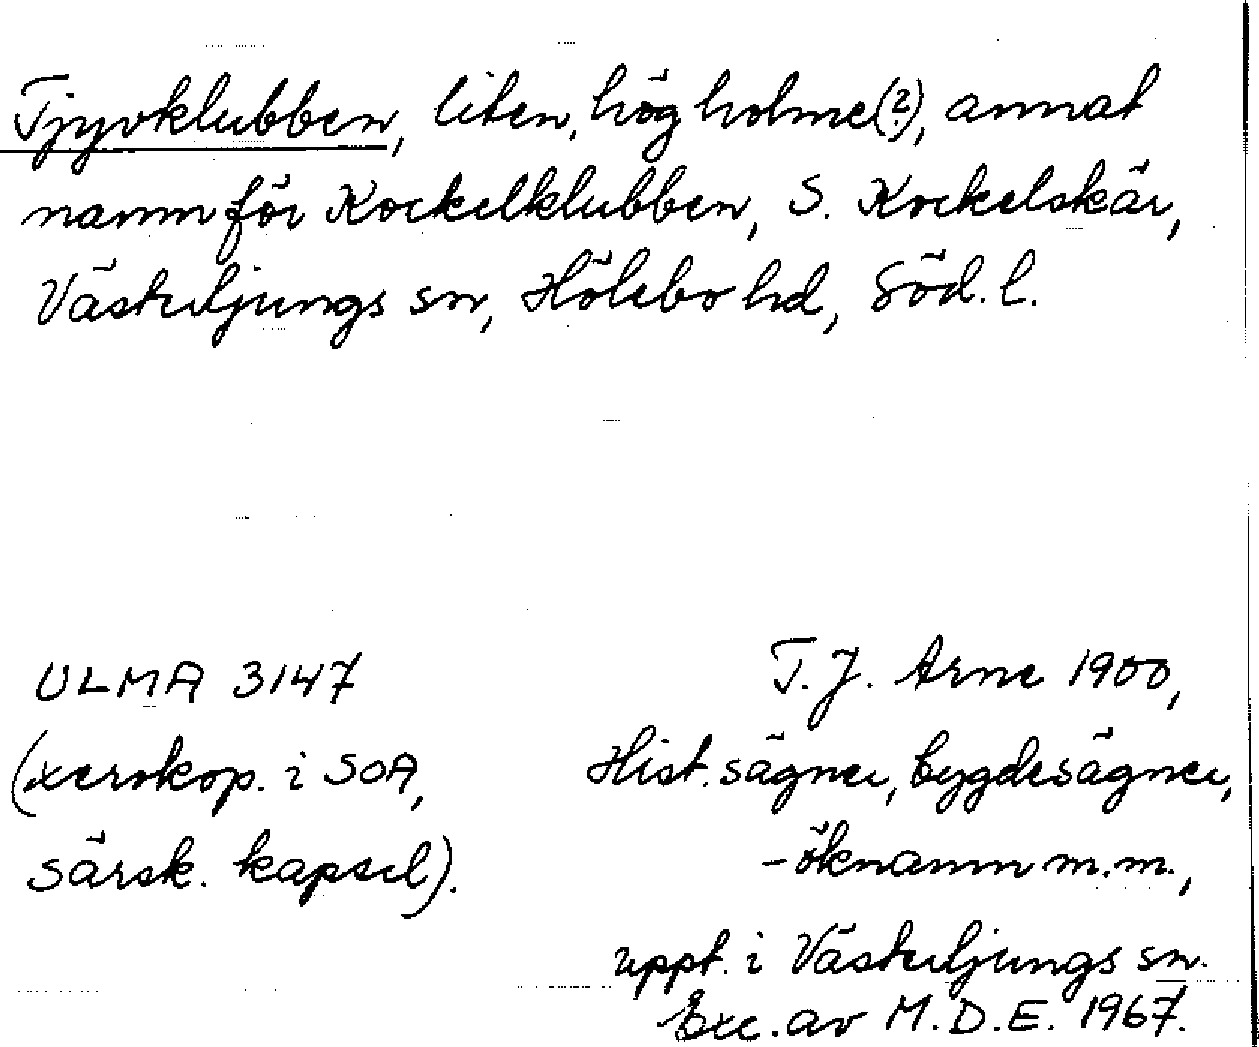 Tjyvklubben, liten, hög holme(?), annat
namn för Kockelklubben, S. Kockelskär,
Västerljungs sn, Hölebo hd, Söd. l.
ULMA 3147
(xerokop. i SOA,
särsk. kapsel).
T. J. Arne 1900,
Hist. sägner, bygdesägner,
-öknamn m.m.,
uppt. i Västerljungs sn.
Exc. av M.D.E. 1967.